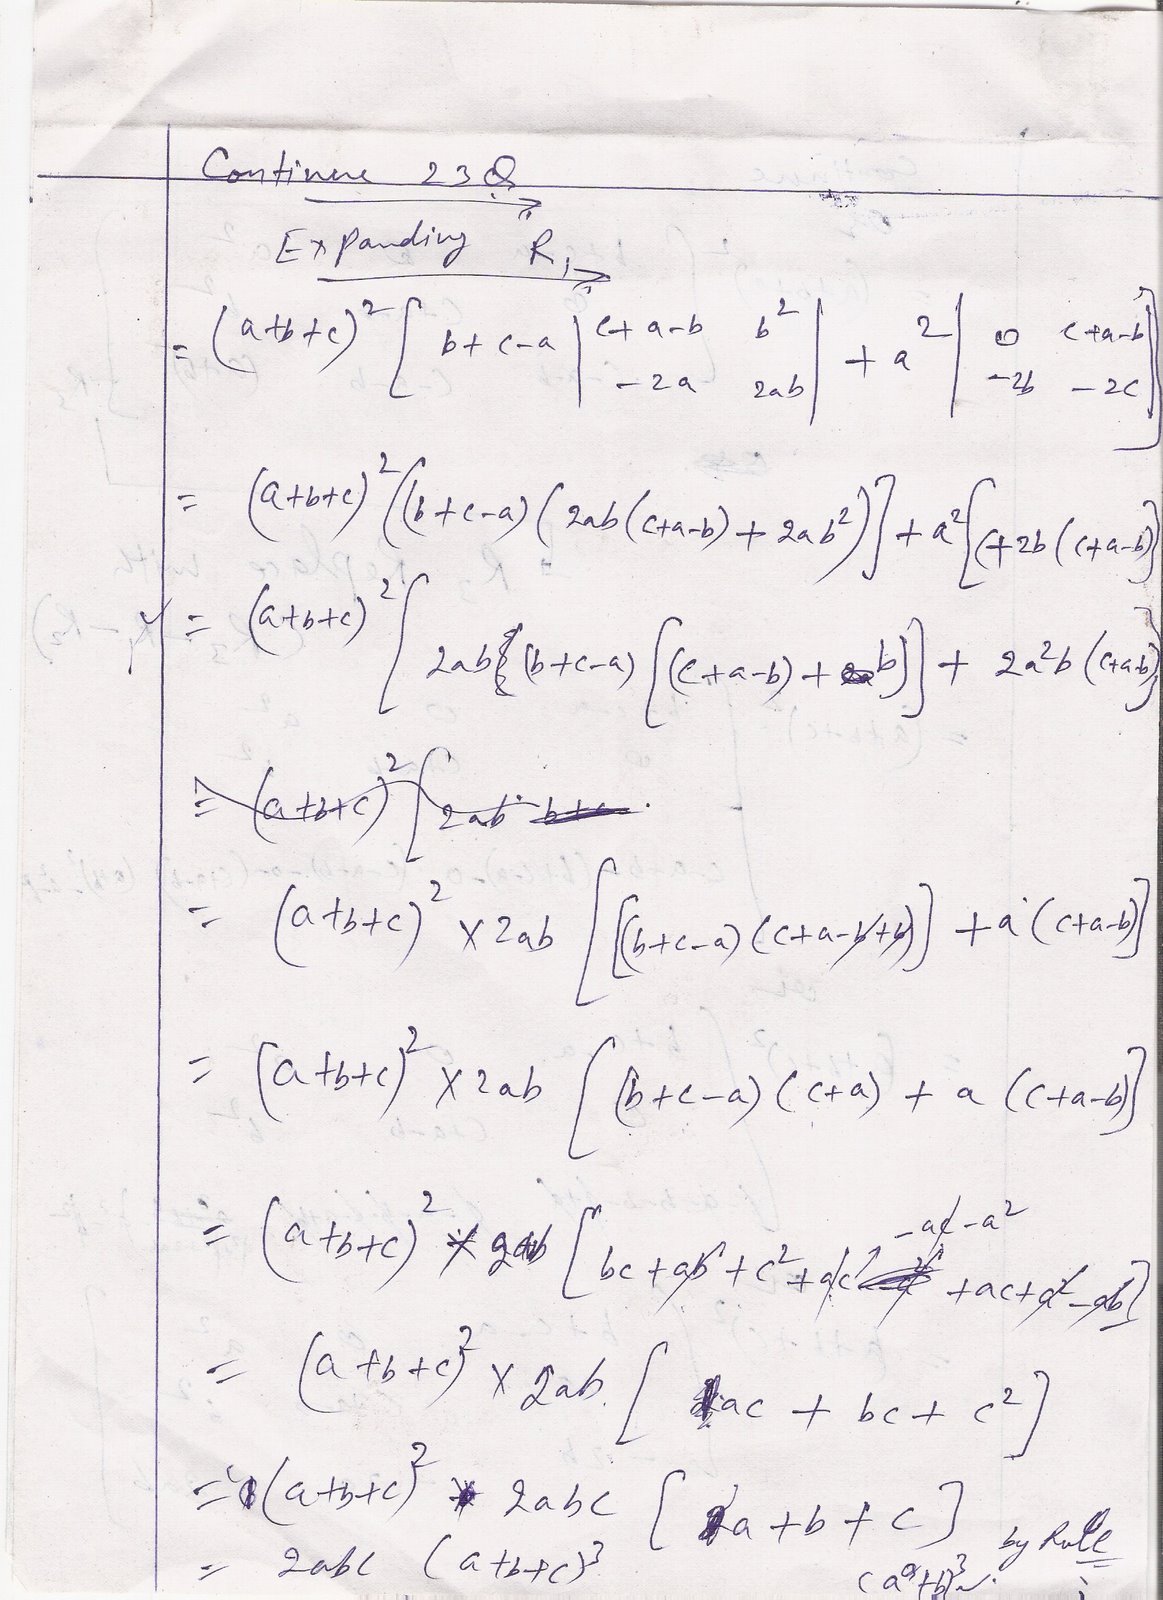 Continue 23Q
Expanding R₁
= (a+b+c)² [ b+c-a | c+a-b b² | + a² | 0 c+a-b | ]
-2a 2ab -2b -2c
= (a+b+c)² [(b+c-a) (2ab(c+a-b) + 2ab²)] + a² [(+2b(c+a-b)]
= (a+b+c)² [ 2ab{(b+c-a) [(c+a-b) + b]] + 2a²b (c+a-b)]
= (a+b+c)² [ 2ab
= (a+b+c)² × 2ab [[(b+c-a) (c+a-b+b)] + a (c+a-b)]
= (a+b+c)² × 2ab [ (b+c-a) (c+a) + a (c+a-b)]
= (a+b+c)² × 2ab [ bc + ab + c² + ac - ac - a² + ac + a² - ab]
= (a+b+c)² × 2ab [ ac + bc + c² ]
= (a+b+c)² × 2abc [ a + b + c ]
= 2abc (a+b+c)³ by Rule